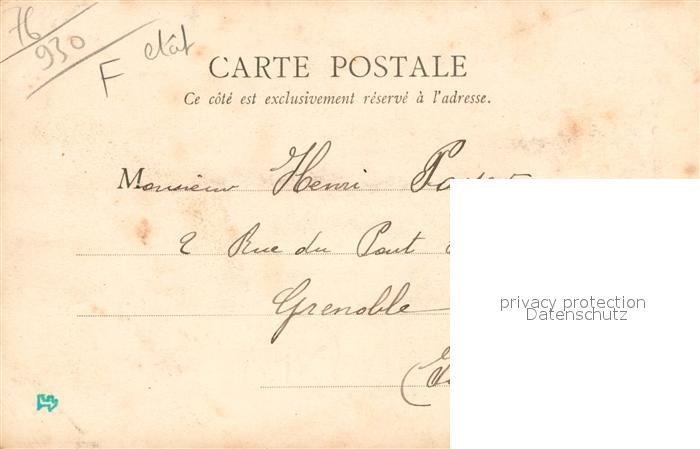 76
930
F état
CARTE POSTALE
Ce côté est exclusivement réservé à l'adresse.
Monsieur Henri
2 Rue du Pont
Grenoble
privacy protection
Datenschutz